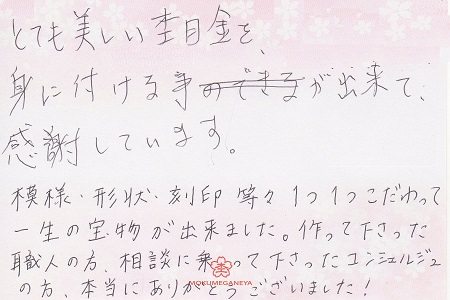 とても美しい杢目金を、
身に付ける事のできるが出来て、
感謝しています。
模様・形状・刻印 等々 1つ1つこだわって
一生の宝物が出来ました。作って下さった
職人の方、相談に乗って下さったコンシェルジュ
の方、本当にありがとうございました!
杢
MOKUMEGANEYA